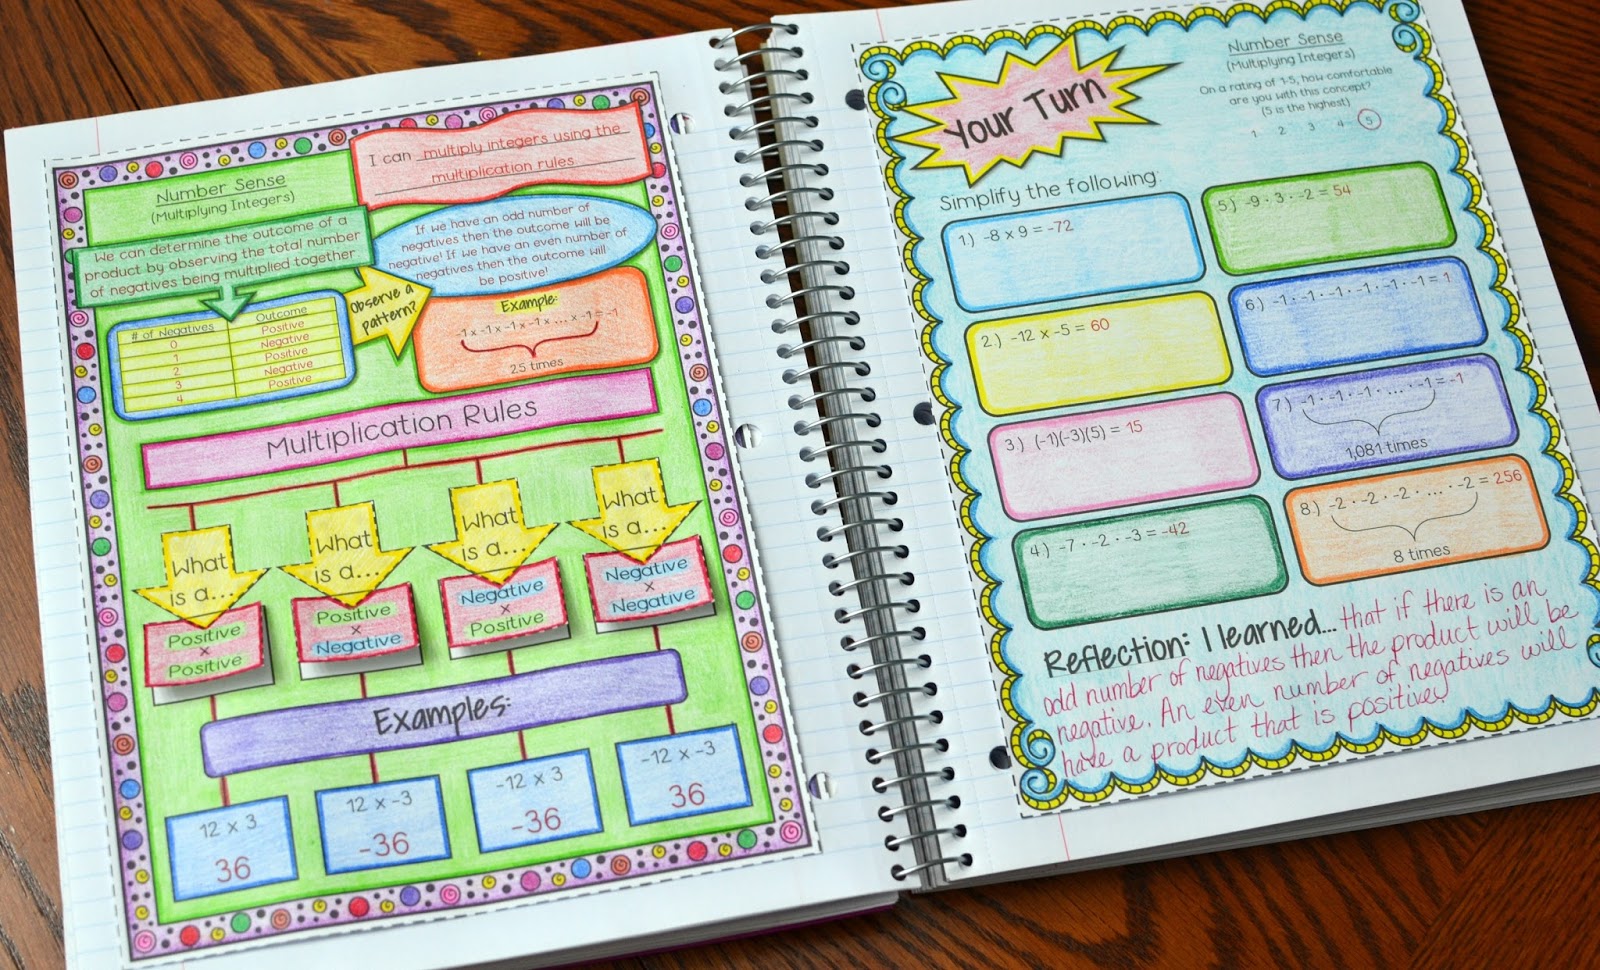 I can multiply integers using the
multiplication rules
Number Sense
(Multiplying Integers)
We can determine the outcome of a
product by observing the total number
of negatives being multiplied together
If we have an odd number of
negatives then the outcome will be
negative! If we have an even number of
negatives then the outcome will
be positive!
# of Negatives Outcome
0 Positive
1 Negative
2 Positive
3 Negative
4 Positive
Observe a
pattern?
Example:
-1 x -1 x -1 x -1 x ... x -1 = -1
25 times
Multiplication Rules
What
is a...
What
is a...
What
is a...
What
is a...
Positive
x
Positive
Positive
x
Negative
Negative
x
Positive
Negative
x
Negative
Examples:
12 x 3
36
12 x -3
-36
-12 x 3
-36
-12 x -3
36
Your Turn
Number Sense
(Multiplying Integers)
On a rating of 1-5, how comfortable
are you with this concept?
(5 is the highest)
1 2 3 4 5
Simplify the following:
1.) -8 x 9 = -72
2.) -12 x -5 = 60
3.) (-1)(-3)(5) = 15
4.) -7 · -2 · -3 = -42
5.) -9 · 3 · -2 = 54
6.) -1 · -1 · -1 · -1 · -1 · -1 = 1
7.) -1 · -1 · -1 · ... · -1 = -1
1,081 times
8.) -2 · -2 · -2 · ... · -2 = 256
8 times
Reflection: I learned... that if there is an
odd number of negatives then the product will be
negative. An even number of negatives will
have a product that is positive!